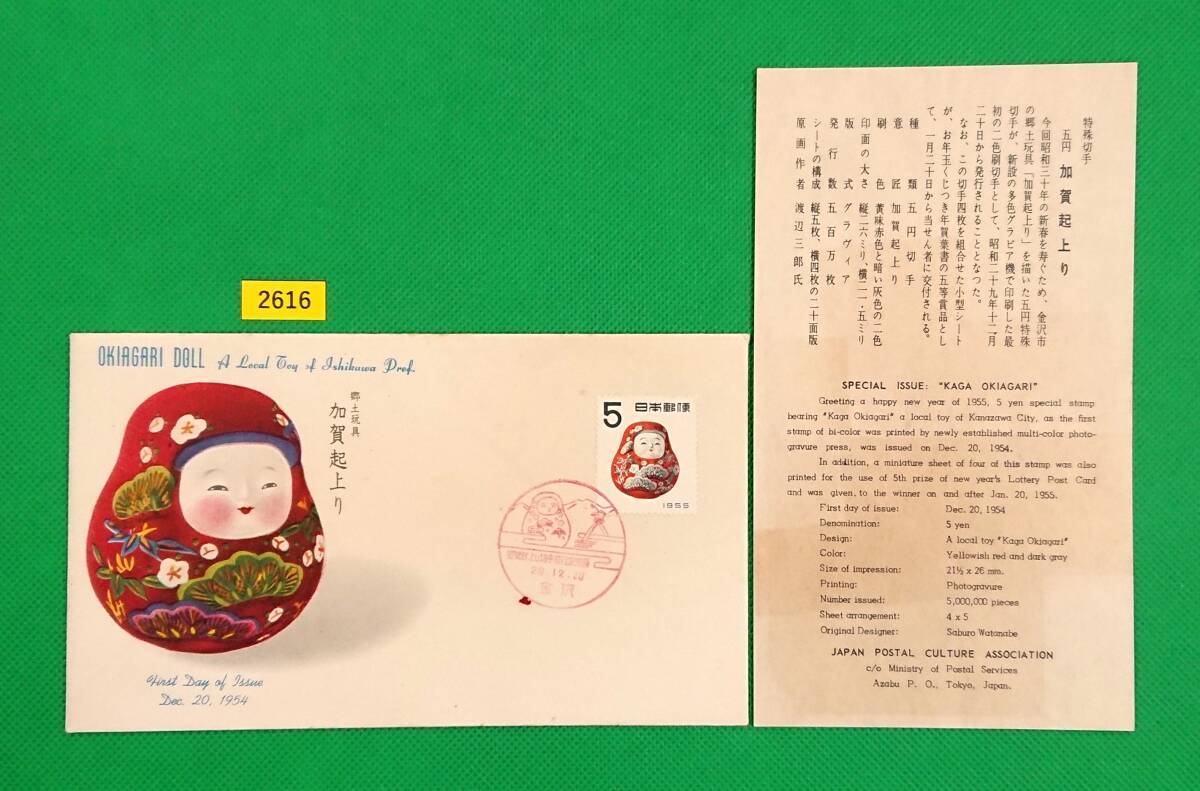 2616
OKIAGARI DOLL A Local Toy of Ishikawa Pref.
郷土玩具
加賀起上り
5 日本郵便
1955
29.12.20
金沢
First Day of Issue
Dec. 20, 1954
特殊切手
五円 加賀起上り
今回昭和三十年の新春を寿ぐため、金沢市
の郷土玩具「加賀起上り」を描いた五円特殊
切手が、新設の多色グラビア機で印刷した最
初の二色刷切手として、昭和二十九年十二月
二十日から発行されることとなつた。
なお、この切手四枚を組合せた小型シート
が、お年玉くじつき年賀葉書の五等賞品とし
て、一月二十日から当せん者に交付される。
種類 五円切手
意匠 加賀起上り
刷色 黄味赤色と暗い灰色の二色
印面の大さ 縦二六ミリ、横二一・五ミリ
版式 グラヴィア
発行数 五百万枚
シートの構成 縦五枚、横四枚の二十面版
原画作者 渡辺三郎氏
SPECIAL ISSUE: "KAGA OKIAGARI"
Greeting a happy new year of 1955, 5 yen special stamp
bearing "Kaga Okiagari" a local toy of Kanazawa City, as the first
stamp of bi-color was printed by newly established multi-color photo-
gravure press, was issued on Dec. 20, 1954.
In addition, a miniature sheet of four of this stamp was also
printed for the use of 5th prize of new year's Lottery Post Card
and was given, to the winner on and after Jan. 20, 1955.
First day of issue: Dec. 20, 1954
Denomination: 5 yen
Design: A local toy "Kaga Okiagari"
Color: Yellowish red and dark gray
Size of impression: 21½ x 26 mm.
Printing: Photogravure
Number issued: 5,000,000 pieces
Sheet arrangement: 4 x 5
Original Designer: Saburo Watanabe
JAPAN POSTAL CULTURE ASSOCIATION
c/o Ministry of Postal Services
Azabu P. O., Tokyo, Japan.